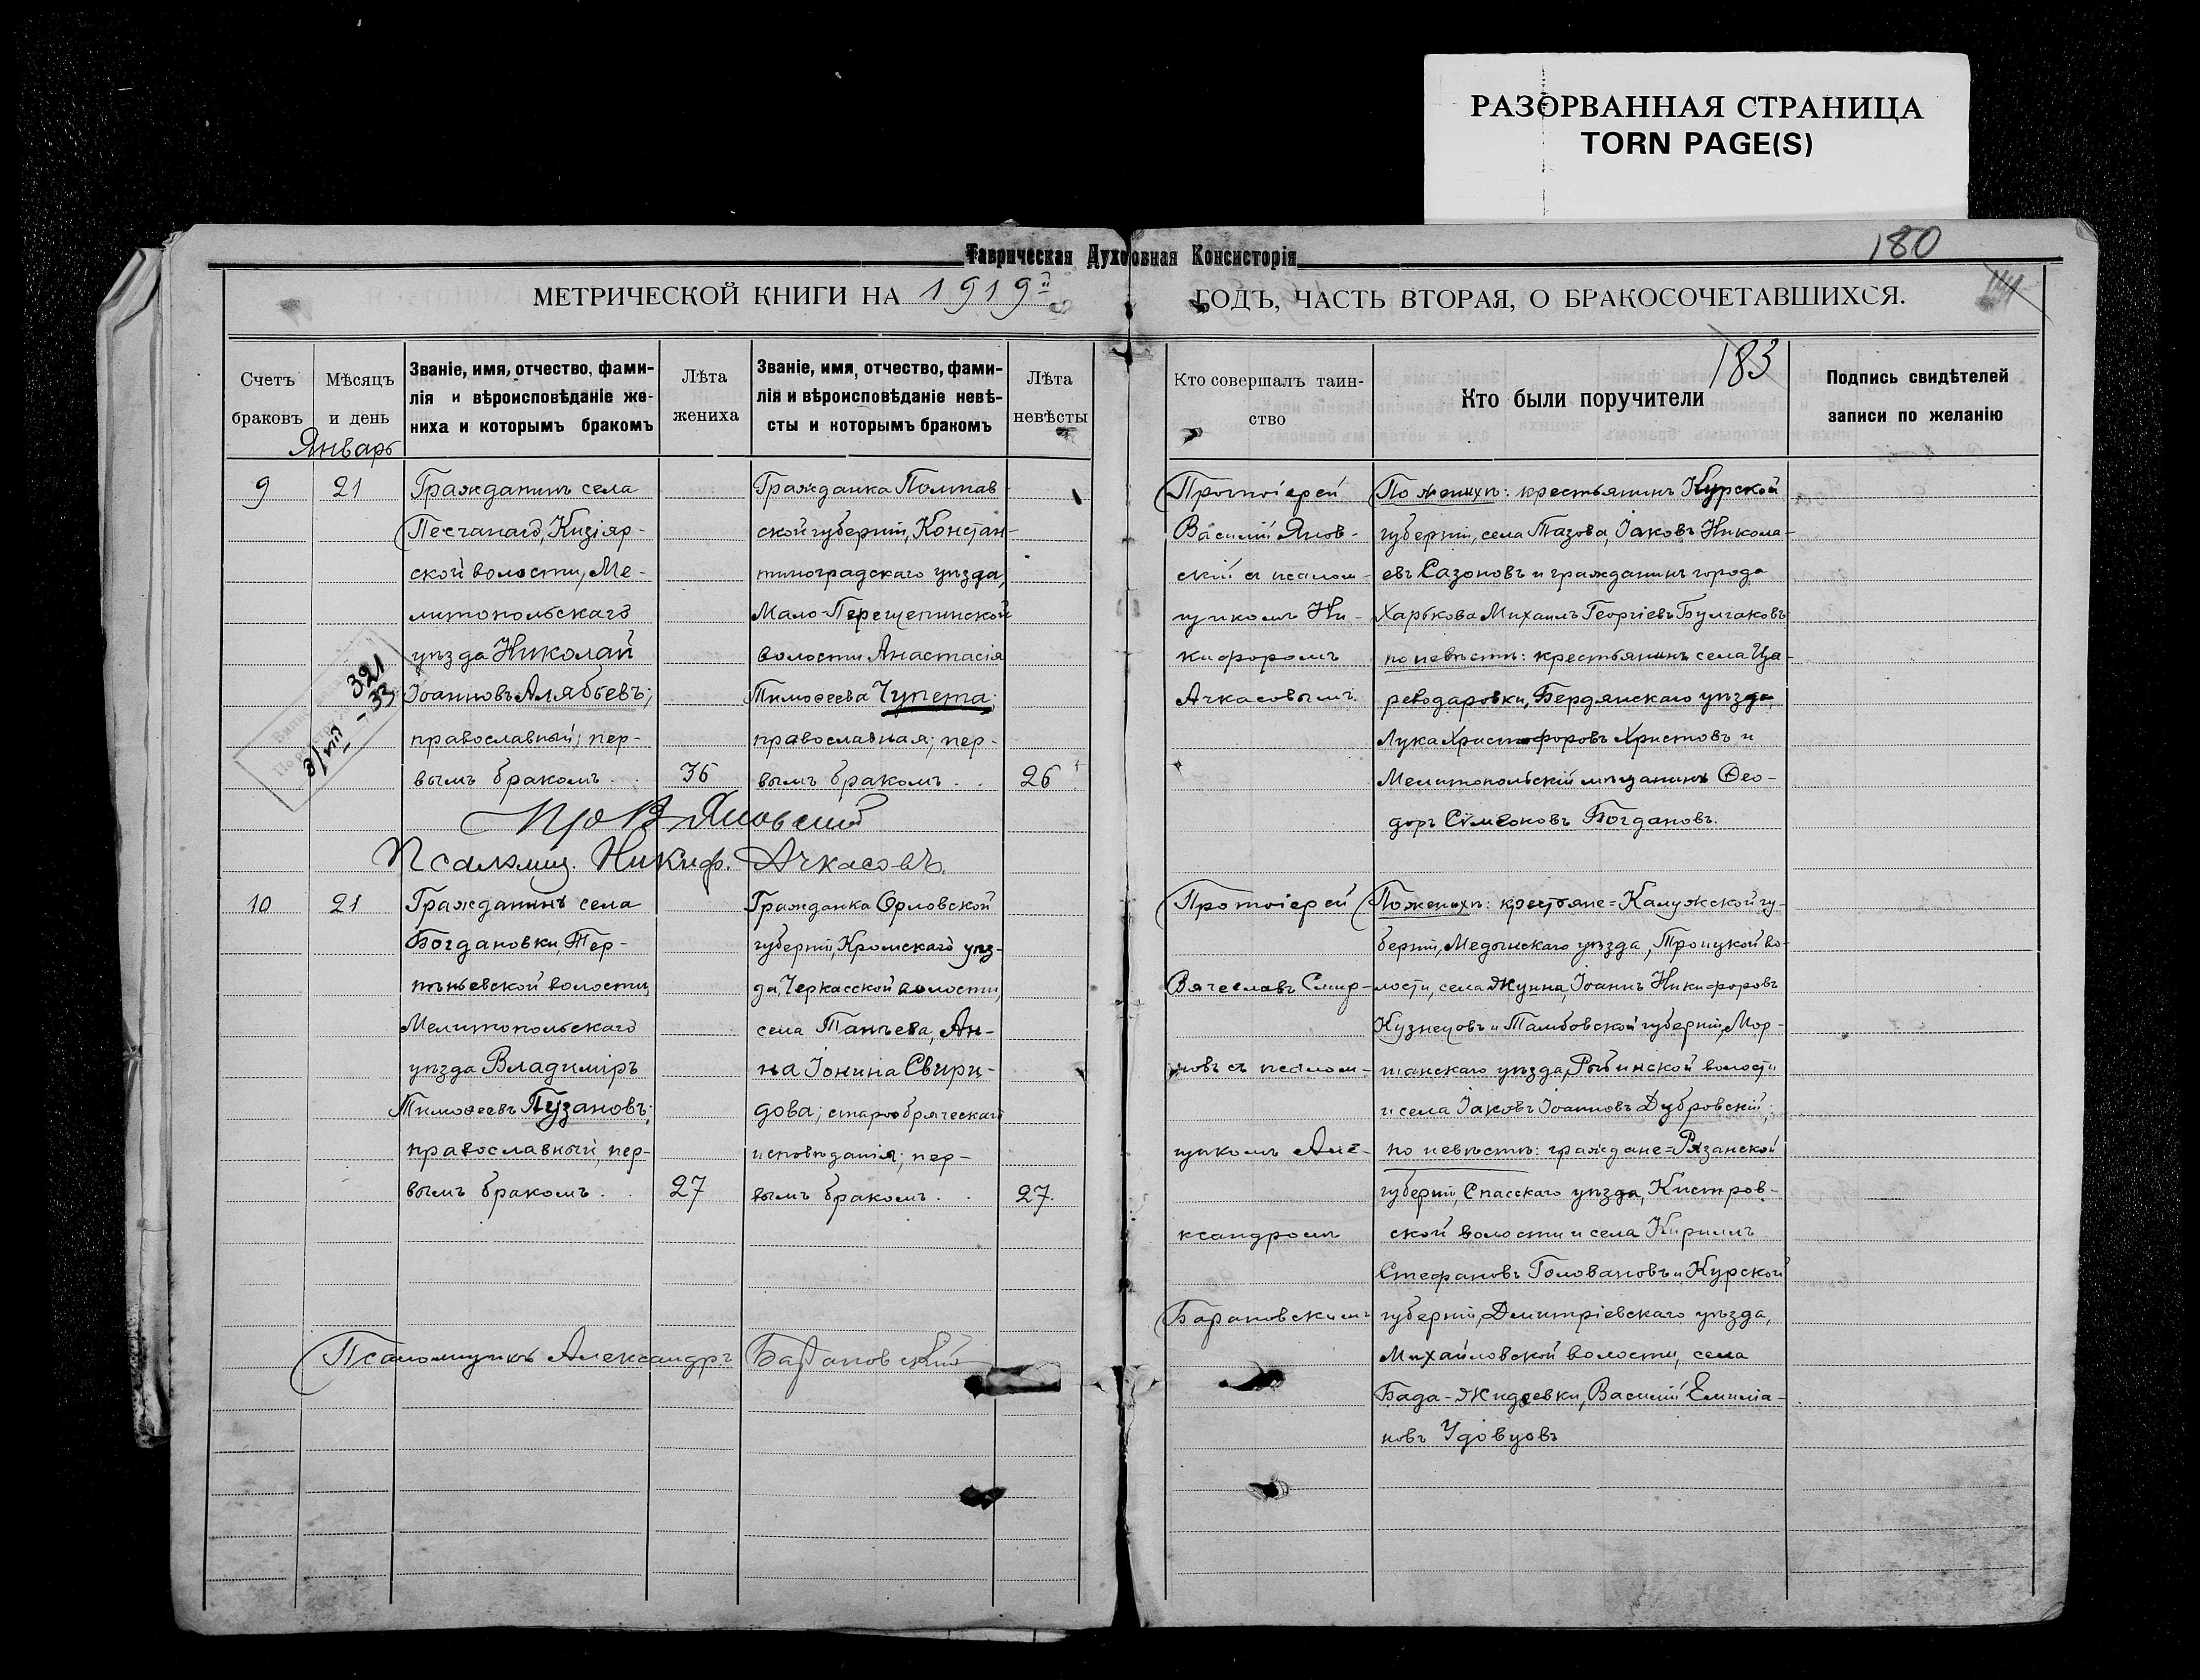 РАЗОРВАННАЯ СТРАНИЦА
TORN PAGE(S)
Таврическая Духовная Консисторія
180
МЕТРИЧЕСКОЙ КНИГИ НА 1919й ГОДЪ, ЧАСТЬ ВТОРАЯ, О БРАКОСОЧЕТАВШИХСЯ.
183
Счетъ
браковъ
Мѣсяцъ
и день
Званіе, имя, отчество, фами-
лія и вѣроисповѣданіе же-
ниха и которымъ бракомъ
Лѣта
жениха
Званіе, имя, отчество, фами-
лія и вѣроисповѣданіе невѣ-
сты и которымъ бракомъ
Лѣта
невѣсты
Кто совершалъ таин-
ство
Кто были поручители
Подпись свидѣтелей
записи по желанію
Январь
9
21
Гражданинъ села
Песчанаго, Кизіяр-
ской волости, Ме-
литопольскаго
уѣзда Николай
Іоанновъ Алябьевъ;
православный; пер-
вымъ бракомъ . .
36
Гражданка Полтав-
ской губерніи, Констан-
тиноградскаго уѣзда,
Мало-Перещепинской
волости Анастасія
Тимоѳеева Чупета;
православная; пер-
вымъ бракомъ . .
26
Протоіерей
Василій Янов-
скій съ псалом-
щикомъ Ни-
кифоромъ
Ачкасовымъ.
По женихѣ: крестьянинъ Курской
губерніи, села Тазова, Іаковъ Никола-
евъ Сазоновъ и гражданинъ города
Харькова Михаилъ Георгіевъ Булгаковъ
по невѣстѣ: крестьянинъ села Ца-
реводаровки, Бердянскаго уѣзда,
Лука Христофоровъ Христовъ и
Мелитопольскій мѣщанинъ Ѳео-
доръ Сѵмеоновъ Богдановъ.
321
33
Про В Яновскій
Псаломщ. Никиф. Ачкасовъ.
10
21
Гражданинъ села
Богдановки, Тер-
пѣньевской волости,
Мелитопольскаго
уѣзда Владиміръ
Тимоѳеевъ Пузановъ;
православный, пер-
вымъ бракомъ . .
27
Гражданка Орловской
губерніи, Кромскаго уѣз-
да, Черкасской волости,
села Танѣева, Ан-
на Іонина Свири-
дова; старообряческаго
исповѣданія; пер-
вымъ бракомъ . .
27.
Протоіерей
Вячеславъ Смир-
новъ съ псалом-
щикомъ Але-
ксандромъ
Барановскимъ
По женихѣ: крестьяне=Калужской гу-
берніи, Медынскаго уѣзда, Троицкой во-
лости, села Жуина, Іоаннъ Никифоровъ
Кузнецовъ и Тамбовской губерніи, Мор-
шанскаго уѣзда, Рыбинской волости
и села Іаковъ Іоанновъ Дубровскій;
по невѣстѣ: граждане=Рязанской
губерніи, Спасскаго уѣзда, Кистров-
ской волости и села Кириллъ
Стефановъ Головановъ и Курской
губерніи, Дмитріевскаго уѣзда,
Михайловской волости, села
Бада-Жидеевки, Василій Емиліа-
новъ Удовцовъ
Псаломщикъ Александръ Барановскій